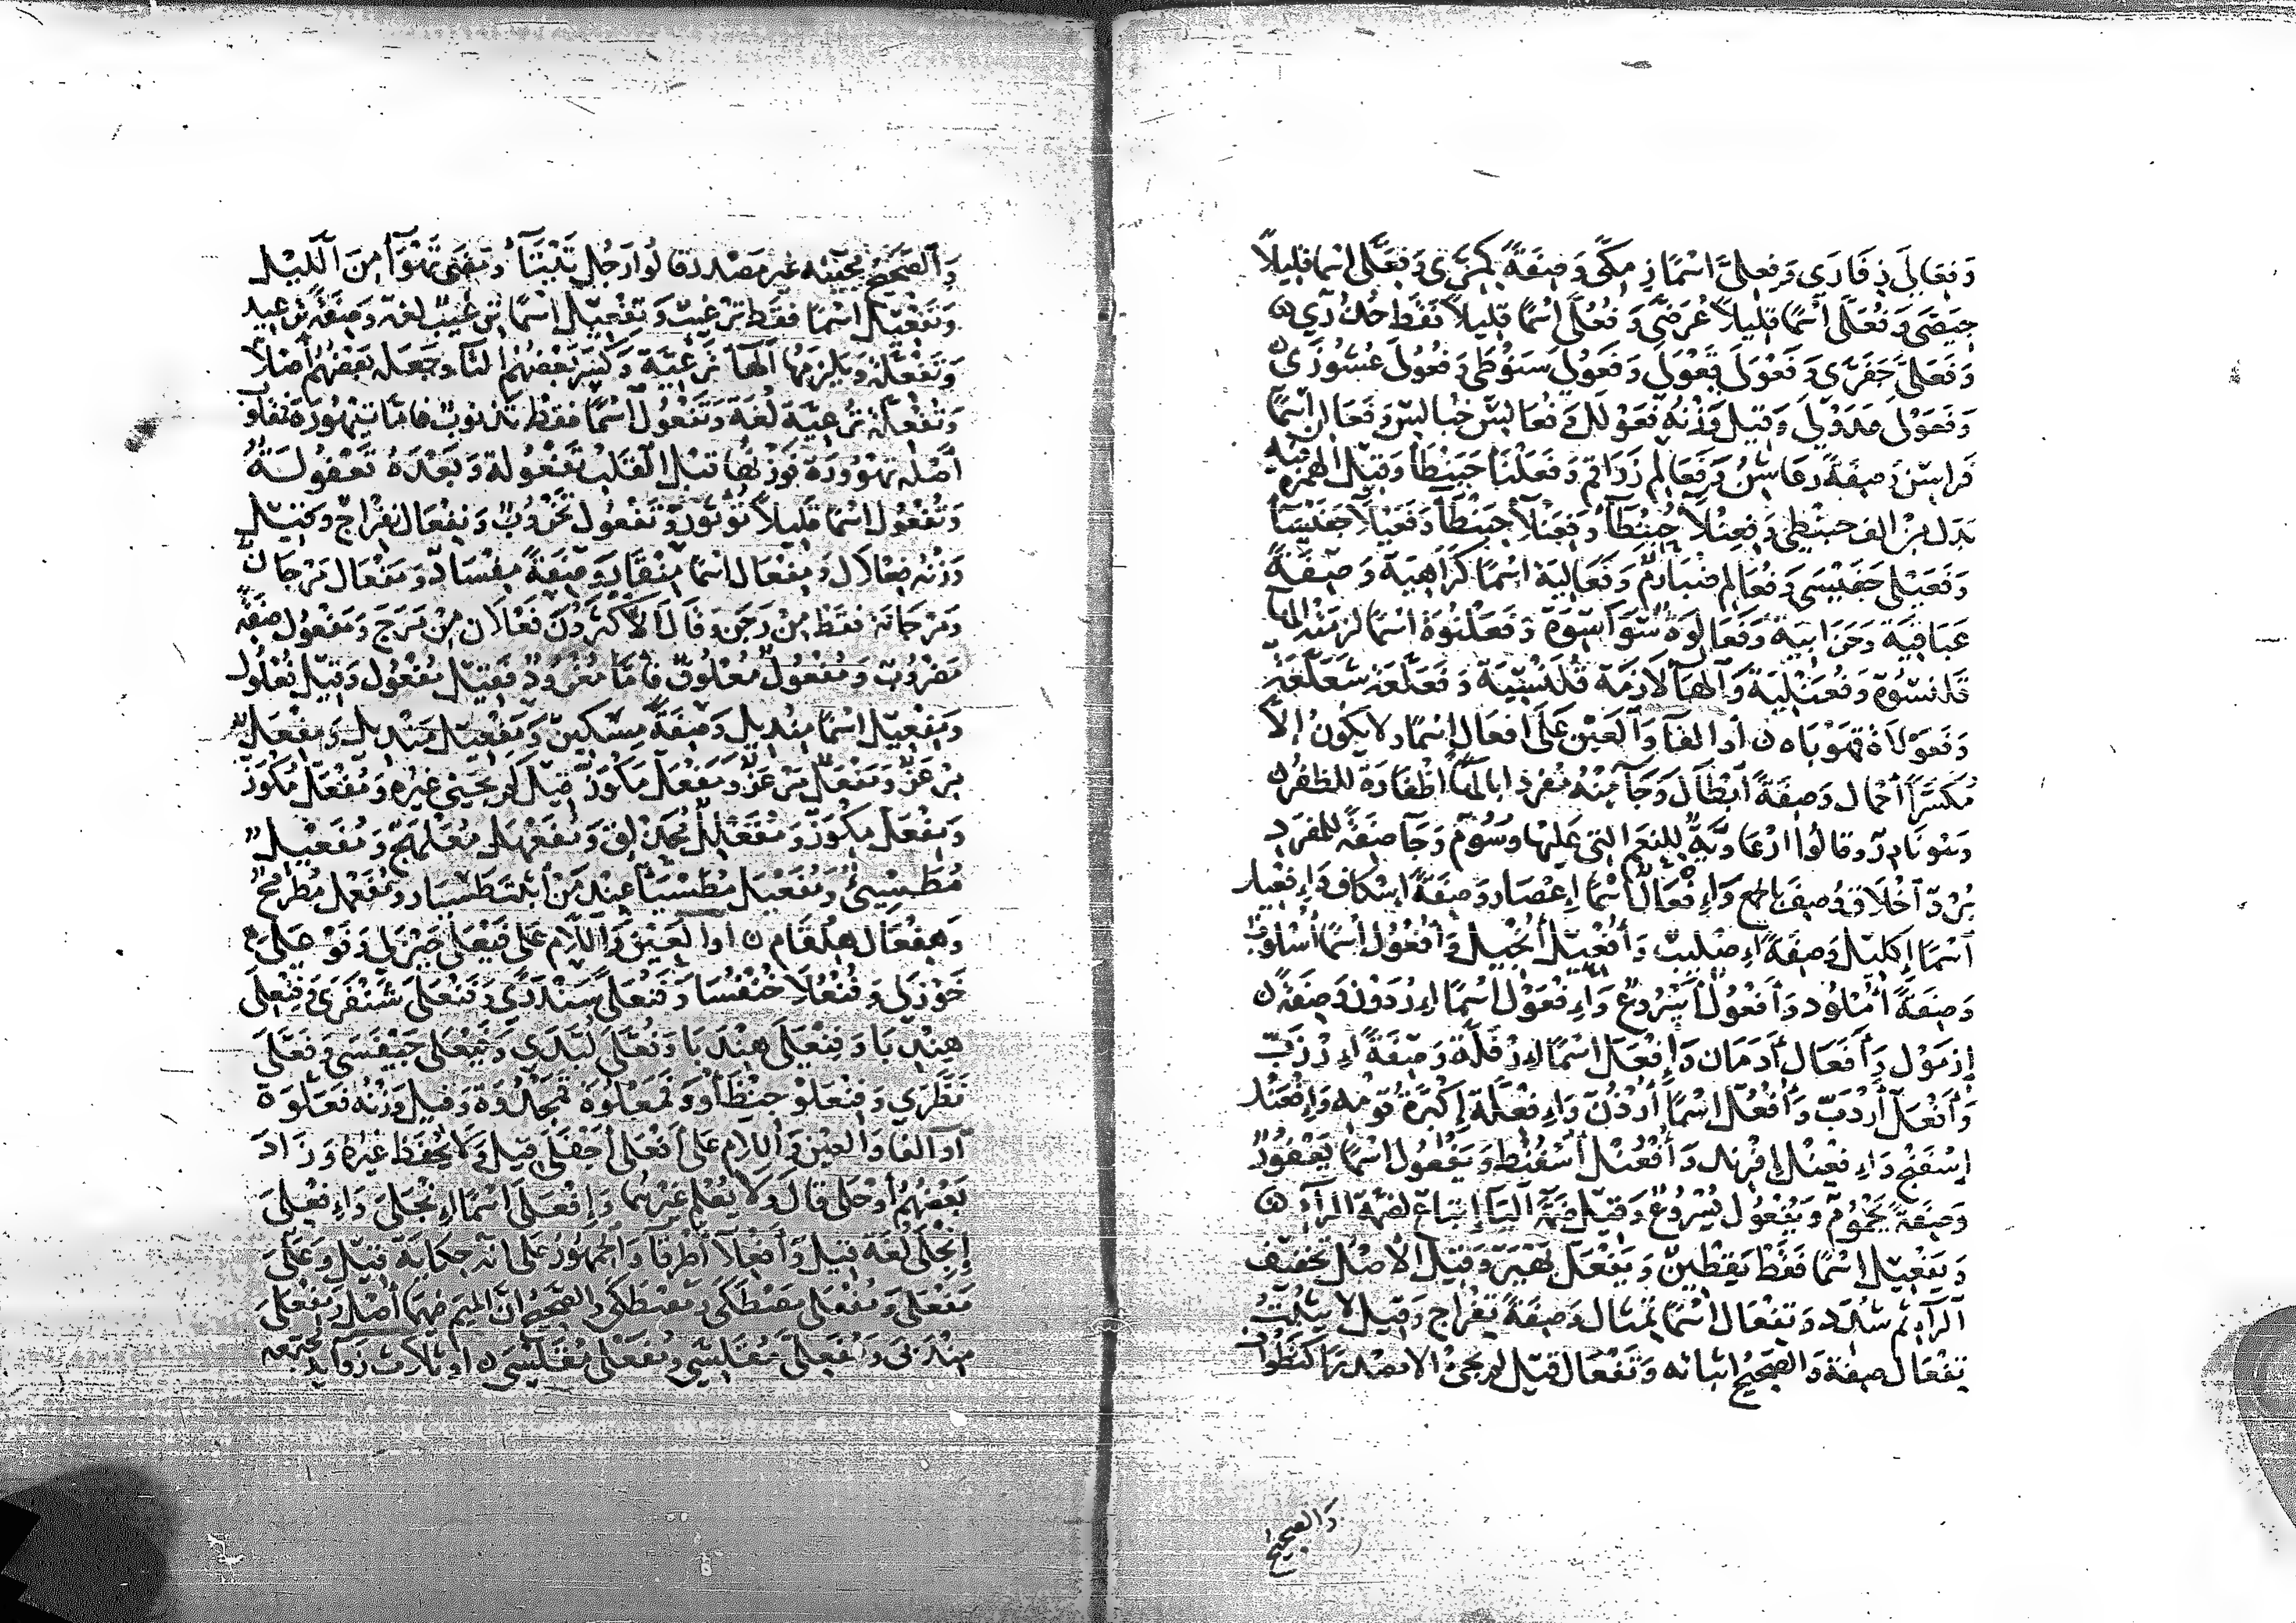 وَفَعَالَى ذِفَارَى وَفِعِلَّى اسْمًا زِمِكَّى وَصِفَةً كِمِرَّى وَفِعَلَّى اسْمًا قليلاً
جِيَضَّى وَفُعَلَّى اسْمًا قليلاً عُرَضَّى وَفُعُلَّى اسْمًا قليلاً فقط حُذُرَّى
وَفَعَلَّى جَفَرَّى وَفَعْوَلَى قَعْوَلَى وَفَعُولَى سَنُوطَى وَفُعُولَى عُشُورَى
وَفَعَوْلَى فَدَوْلَى وَقِيلَ وَزْنُهُ فَعَوْلَل وَفُعَالِيَن خُبَالِيَن وَفَعَالِن اسْمًا
فَرَاسِن وَصِفَةً رَعَاشِن وَفَعَالِم زَرَاقِم وَفَعَلْنَأ حَبَنْطَأ وَقِيلَ الهمزة فيه
بَدَل من الف حبنطى وَفِعِنْلَأ حِبِنْطَأ وَفِعَنْلَأ حِبَنْطَأ وَفَعَيْلَأ حَفَيْسَأ
وَفَعَيْلَى حَفَيْسَى وَفُعَالِم ضُبَارِم وَفَعَالِيَة اسْمًا كَرَاهِيَة وَصِفَةً
عَبَاقِيَة وَحَزَابِيَة وَفَعَالوَة سَوَاسِوَة وَفَعَلْنُوَة اسْمًا لزمته الها
قلنسُوة وَفُعَنْلِيَة وَالها لازمة قُلَنْسِيَة وَفَعَلَّعَة شَعَلَّعَة
وَفَعَوْلَاة قَهَوْبَاة ن أو الفا وَالعَيْن عَلَى أفعال اسْمًا ولا يكون إلا
مُكَسَّرًا أحمال وَصِفَةً أَبْطَال وَجَآ مِنْهُ مفردًا بالهآ أظفارة للظفر
وَهو نَادِر وقالوا أرْعَاوِيَّة للنعم التي عليها وسُوم وَجَآ صفة للمفرد
بُرْد أخْلَاق وُصِفَ بالجمع وَإِفْعَال اسْمًا إِعْصَار وَصِفَةً إِسْكَاف وَإِفْعِيل
اسْمًا إِكليل وَصِفَةً إِصْلِيت وَأُفْعِيل أُنْجِيل وَأُفْعُول اسْمًا أُسْلُوب
وَصِفَةً أُمْلُود وَأَفْعُول أَسْرُوع وَإِفْعَوْل اسْمًا إِرْدَوْن وَصِفَة
إِزْمَوْل وَأَفَعَال أَدَمَان وَإِفْعَلّ اسْمًا إِرْفَلَّة وَصِفَةً إِرْزَبّ
وَأَفْعَلّ أَرْدَبّ وَأُفْعُلّ اسْمًا أُرْدُنّ وَإِفْعِلَّة إِكْبِرَّة قومه وَإِفْعَنْل
إِسْفَنْج وَإِفْعِنْل إِفْرِند وَأُفْعُنْل أُسْفُنْط وَيَفْعُول اسْمًا يَعْفُور
وَصِفَةً يَحْمُوم وَيُفْعُول يُسْرُوع وَقِيلَ ضمة اليا إتباع لضمة الرآء ن
وَيَفْعِيل اسْمًا فقط يَقْطِين وَيَفْعَلّ يَهْيَرّ وَقِيلَ الأصل تخفيف
الرآء ثم شُدِّد وَتِفْعَال اسْمًا تِمْثَال وَصِفَةً تِفْرَاج وَقِيلَ لا يثبت
تِفْعَال صِفة وَالصحيح اثباته وَتَفْعَال قيل لم يجئ الا مصدرًا كتَطْوَاف
وَالصحيح
وَالصحيح مجيئه غير مصدر قالوا رجل تَيْتَآ وَمضى تَهْوَآ من الليل
وَتَفْعِيل اسْمًا فقط تَرْعِيب وَتِفْعِيل اسْمًا تِرْعِيب لغة وَصفة تِرْعِيد
وَتَفْعِلَّة وَيلزمها الها تَرْعِيَّة وَكَسَرَ بَعْضُهم التآ وجعله بَعْضهم أصلاً
وَتُفْعِلَّة تُرْعِيَّة لغة وَتَفْعُول اسْمًا فقط تَذْنُوب فامّا تَيْهُورة فقالوا
أصله تَهْوُورَة فوزنها قبل القلب تَفْعُولة وَبعده تَعْفُولَة
وَتُفْعُول اسْمًا قليلاً تُؤْثُور وَتَفْعُول تَخْرُوب وَنِفْعَال نِفْرَاج وَقِيلَ
وَزْنُه فِعْلَال وَمِفْعَال اسْمًا مِنْقَار وَصِفَةً مِفْسَاد وَمَفْعَال مَرْجَان
وَمَرْجَانة فقط مِن رَجَن وَقال الأكثرون فَعْلَان مِن مَرَج وَمَفْعُول صفة
مَضْرُوب وَمُفْعُول مُعْلُوق فامّا مُغْرُود فقيل مُفْعُول وَقِيلَ فُعْلُول
وَمِفْعِيل اسْمًا مِنْدِيل وَصِفَةً مِسْكِين وَمَفْعِيل مَنْدِيل وَمِفْعِلّ
مِرْعِزّ وَمَفْعِلّ مَرْعِزّ وَمَفْعَلّ مَكْوَرّ قيل لم يجئ غيره وَمُفْعَلّ مُكْوَرّ
وَمِفْعَلّ مِكْوَرّ وَمُفَعْلِل مُحَذْلِق وَمُفَعْهَل مُعَلْهَج وَمُفَعْيِل
مُطَشْيِئ وَمُفَعْيَل مُطَشْيَأ عند من أثبت طَشْيَأ وَمُفَعْمِل مُطَرْمِح
وَهِفْعَال هِلْقَام ن أو العين وَاللام على فَيْعَلَى خَيْزَلَى وَفَوْعَلَى
خَوْزَلَى وَفُنْعُلَا خُنْفُسَا وَفَعَنْلَى سَنْدَرَى وَفَنْعَلَى شَنْفَرَى وَفِنْعِلَى
هِنْدِبَا وَفِنْعَلَى هِنْدَبَا وَفُعَّلَى لُبَّدَى وَفَيَعْلَى حَيَفْسَى وَفَعَّلَى
نَظَّرَى وَفِنْعَلْو حِنْظَأْو وَفَمَعْلُوَة قمحدُوَة وقيل وزنه فَعَلُّوَة
أو الفا والعين واللام على أَفْعَلَى أَجْفَلَى قيل وَلا يُحفظ غيره وَزَادَ
بَعْضُهُم أَوْجَلَى قال وَلا يُعْلم غيرهما وَإِفْعَلَى اسْمًا إِيْجَلَى وَإِفْعِلَى
إِيْجِلَى لغة قيل وَأَفْعِلَا أَطْرِقَا وَالجمهور على أنه حكاية قيل وَعَلَى
مَفْعَلَى وَمُفْعَلَى وَالصحيح أن الميم فيهما أصل وَمِفْعِلَى